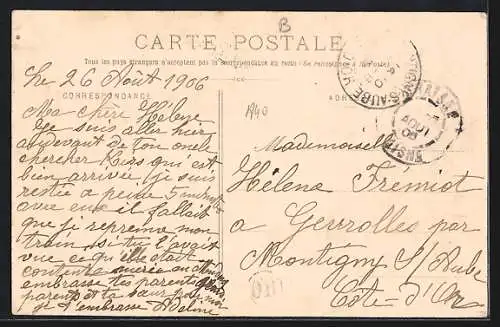 B
CARTE POSTALE
Tous les pays étrangers n'acceptent pas la correspondance au recto (Se renseigner à la Poste)
Le 26 Août 1906
CORRESPONDANCE
Ma chère Hélène
Je suis aller hier
audevant de ton oncle
chercher qui est
bien arrivée je suis
restée a peine 5 minutes
avec eux il fallait
que je reprenne mon
train si tu l'avait
vue ce qu'elle était
contente
embrasse tes parents
parents et ta sœur pour moi
Je t'embrasse
1940
Mademoiselle
Hélène Fremiot
a Gevrolles par
Montigny S/ Aube
Côte d'Or